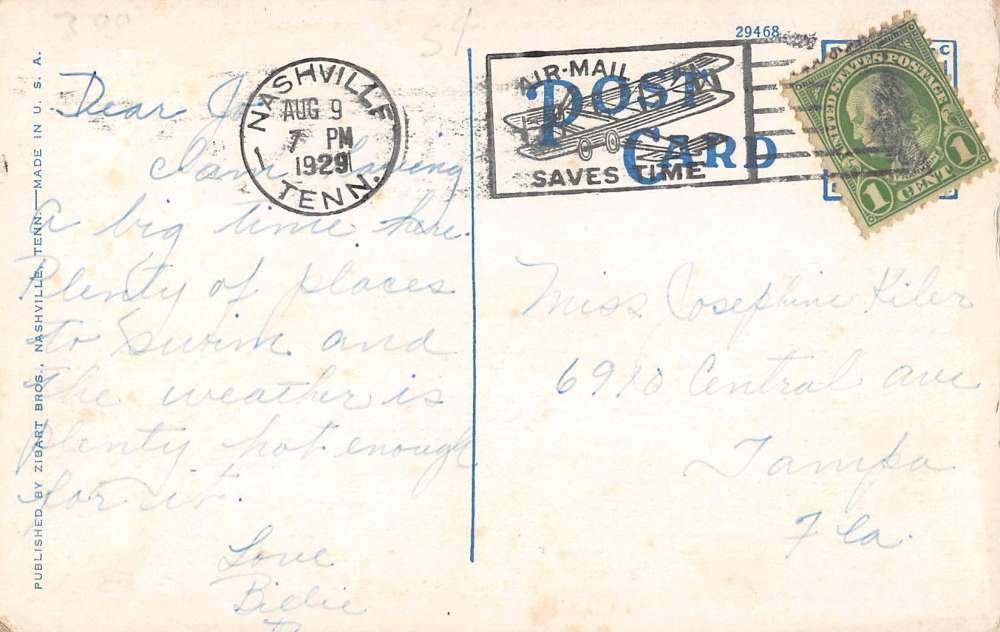 3 00
5¢
29468
NASHVILLE
TENN.
AUG 9
7 PM
1929
AIR-MAIL
SAVES TIME
POST
CARD
UNITED STATES POSTAGE
1 CENT 1
PUBLISHED BY ZIBART BROS., NASHVILLE, TENN.—MADE IN U. S. A.
Dear Jo
I am having
a big time here.
Plenty of places
to swim and
the weather is
plenty hot enough
for it.
Love
Billie
Miss Josephine Kiler
6910 Central ave
Tampa
Fla.